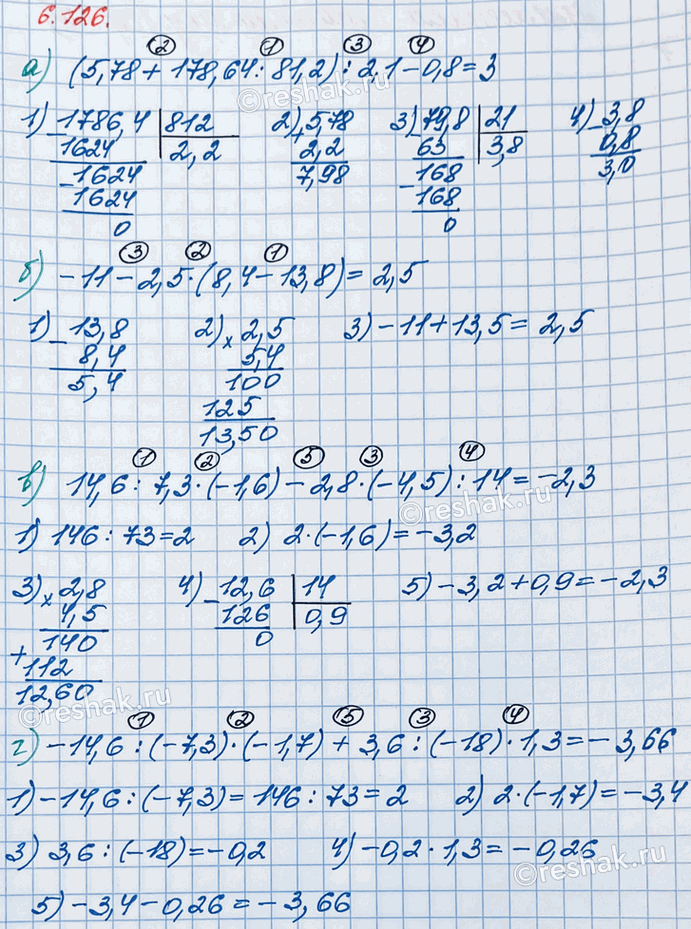 6.126.
② ① ③ ④
а) (5,78 + 178,64 : 81,2) : 2,1 − 0,8 = 3
1) 1786,4 | 812 2) 5,78 3) 79,8 | 21 4) 3,8
− 1624 2,2 + 2,2 − 63 3,8 − 0,8
1624 7,98 168 3,0
− 1624 − 168
0 0
③ ② ①
б) −11 − 2,5 · (8,4 − 13,8) = 2,5
1) 13,8 2) × 2,5 3) −11 + 13,5 = 2,5
− 8,4 5,4
5,4 100
125
13,50
① ② ⑤ ③ ④
в) 14,6 : 7,3 · (−1,6) − 2,8 · (−4,5) : 14 = −2,3
1) 146 : 73 = 2 2) 2 · (−1,6) = −3,2
3) × 2,8 4) 12,6 | 14 5) −3,2 + 0,9 = −2,3
4,5 − 126 0,9
140 0
+ 112
12,60
① ② ⑤ ③ ④
г) −14,6 : (−7,3) · (−1,7) + 3,6 : (−18) · 1,3 = −3,66
1) −14,6 : (−7,3) = 146 : 73 = 2 2) 2 · (−1,7) = −3,4
3) 3,6 : (−18) = −0,2 4) −0,2 · 1,3 = −0,26
5) −3,4 − 0,26 = −3,66
©reshak.ru
©reshak.ru
©reshak.ru
©reshak.ru
©reshak.ru
©reshak.ru